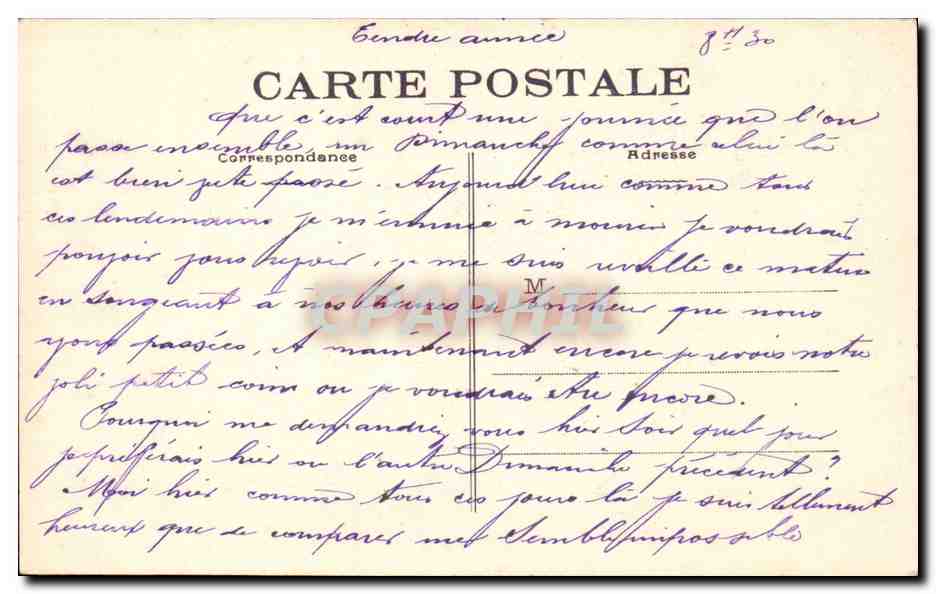 Tendre aimée 8H 30
CARTE POSTALE
Que c'est court une journée que l'on
passe ensemble, un Dimanche comme celui là
Correspondance Adresse
est bien vite passé. Aujourd'hui comme tous
ces lendemains je m'ennuie à mourir je voudrais
pouvoir vous revoir, je me suis reveillé ce matin
M
en songeant à nos heures de bonheur que nous
CPAPHIL
avons passées, et maintenant encore je revois notre
joli petit coin ou je voudrais être encore.
Pourquoi me demandiez vous hier soir quel jour
je préférais hier ou l'autre Dimanche précédent ?
Moi hier comme tous ces jours là je suis tellement
heureux que de comparer me semble impossible